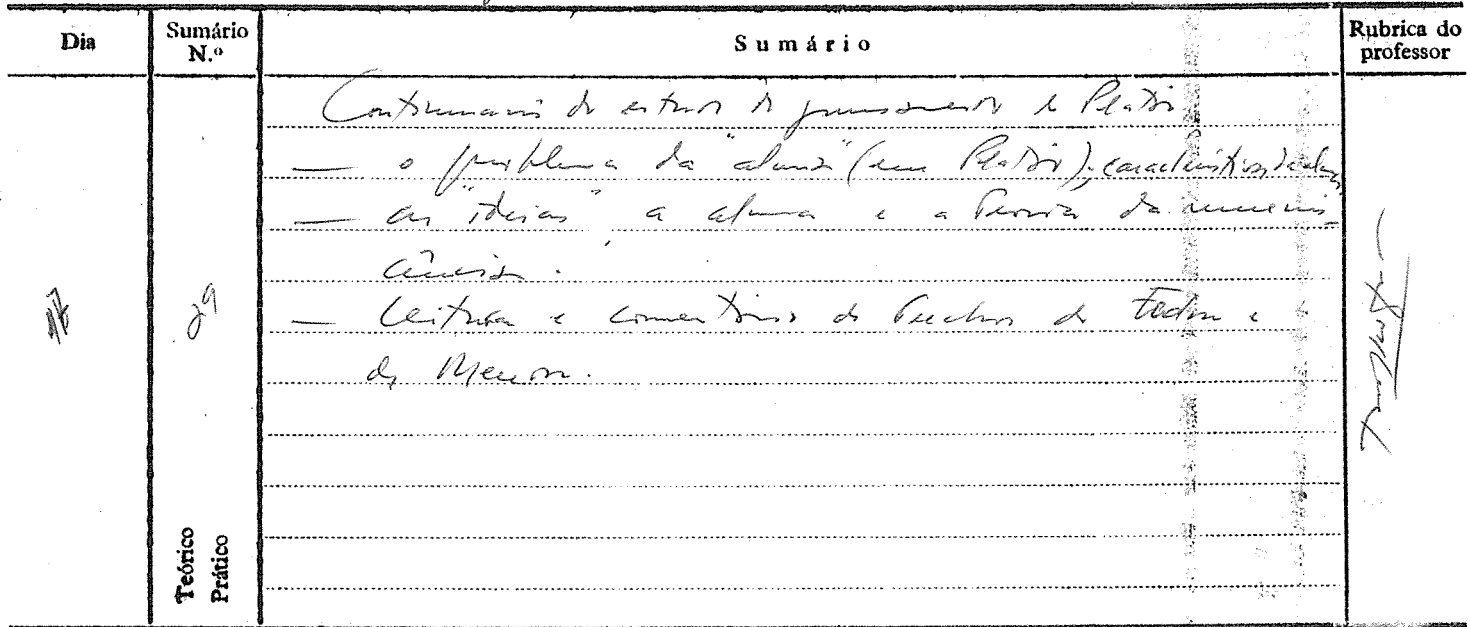 Dia
Sumário N.º
Sumário
Rubrica do professor
Continuação do estudo do pensamento de Platão
— o problema da "alma" (em Platão); características da alma
— as "ideias" a alma e a teoria da reminis-
cência.
— Leitura e comentários de trechos do Fédon e
do Menon.
17
29
Teórico
Prático